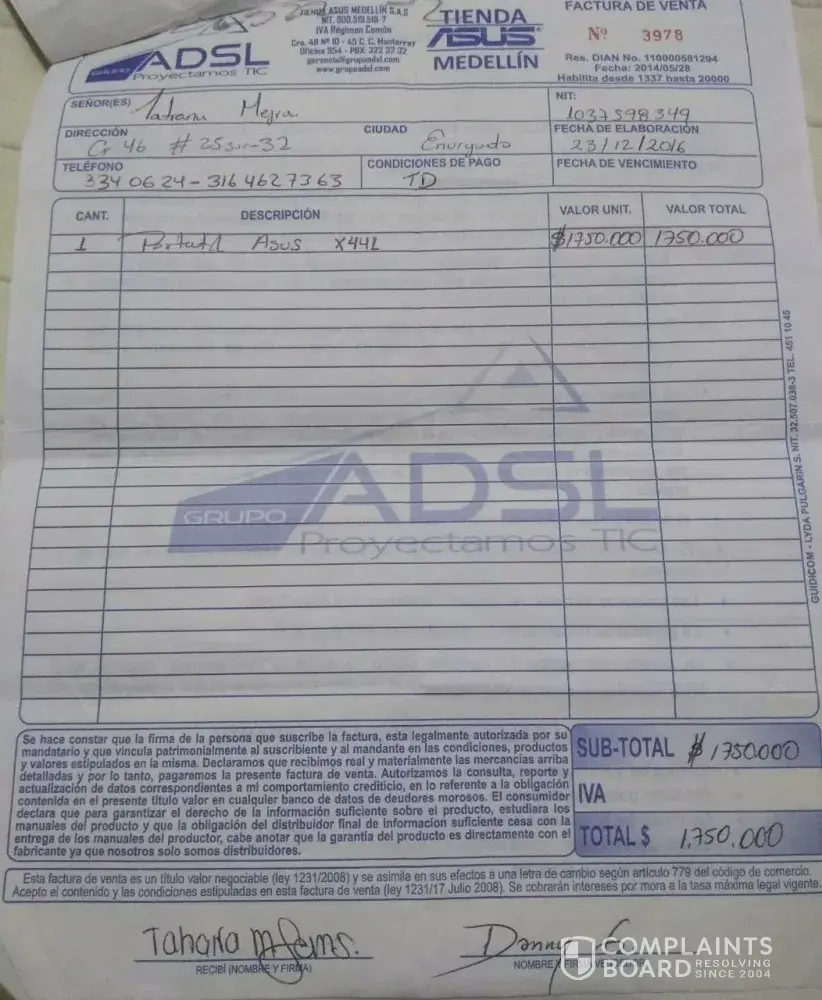 TIENDA ASUS MEDELLÍN S.A.S
NIT. 900.519.519-7
IVA Régimen Común
Cra. 48 Nº 10 - 45 C. C. Monterrey
Oficina 954 - PBX: 322 32 32
gerencia@grupoadsl.com
www.grupoadsl.com
GRUPO ADSL
Proyectamos TIC
TIENDA
ASUS
MEDELLÍN
FACTURA DE VENTA
Nº 3978
Res. DIAN No. 110000581294
Fecha: 2014/05/28
Habilita desde 1337 hasta 20000
SEÑOR(ES) Tatiana Mejia
NIT: 1037598349
DIRECCIÓN Cr 46 # 25sur-32
CIUDAD Envigado
FECHA DE ELABORACIÓN
23/12/2016
TELÉFONO 334 06 24 - 316 462 73 63
CONDICIONES DE PAGO
TD
FECHA DE VENCIMIENTO
CANT. DESCRIPCIÓN VALOR UNIT. VALOR TOTAL
1 Portatil Asus X44L $1750.000 1750.000
GRUPO ADSL
Proyectamos TIC
GUIDICOM - LYDA PULGARIN S. NIT. 32.507.038-3 TEL. 451 10 45
Se hace constar que la firma de la persona que suscribe la factura, esta legalmente autorizada por su
mandatario y que vincula patrimonialmente al suscribiente y al mandante en las condiciones, productos
y valores estipulados en la misma. Declaramos que recibimos real y materialmente las mercancias arriba
detalladas y por lo tanto, pagaremos la presente factura de venta. Autorizamos la consulta, reporte y
actualización de datos correspondientes a mi comportamiento crediticio, en lo referente a la obligación
contenida en el presente titulo valor en cualquier banco de datos de deudores morosos. El consumidor
declara que para garantizar el derecho de la información suficiente sobre el producto, estudiara los
manuales del producto y que la obligación del distribuidor final de informacion suficiente cesa con la
entrega de los manuales del productor, cabe anotar que la garantia del producto es directamente con el
fabricante ya que nosotros solo somos distribuidores.
SUB-TOTAL $ 1750.000
IVA
TOTAL $ 1.750.000
Esta factura de venta es un titulo valor negociable (ley 1231/2008) y se asimila en sus efectos a una letra de cambio según articulo 779 del código de comercio.
Acepto el contenido y las condiciones estipuladas en esta factura de venta (ley 1231/17 Julio 2008). Se cobrarán intereses por mora a la tasa máxima legal vigente.
RECIBÍ (NOMBRE Y FIRMA)
Danny
NOMBRE Y
COMPLAINTS
BOARD RESOLVING
SINCE 2004